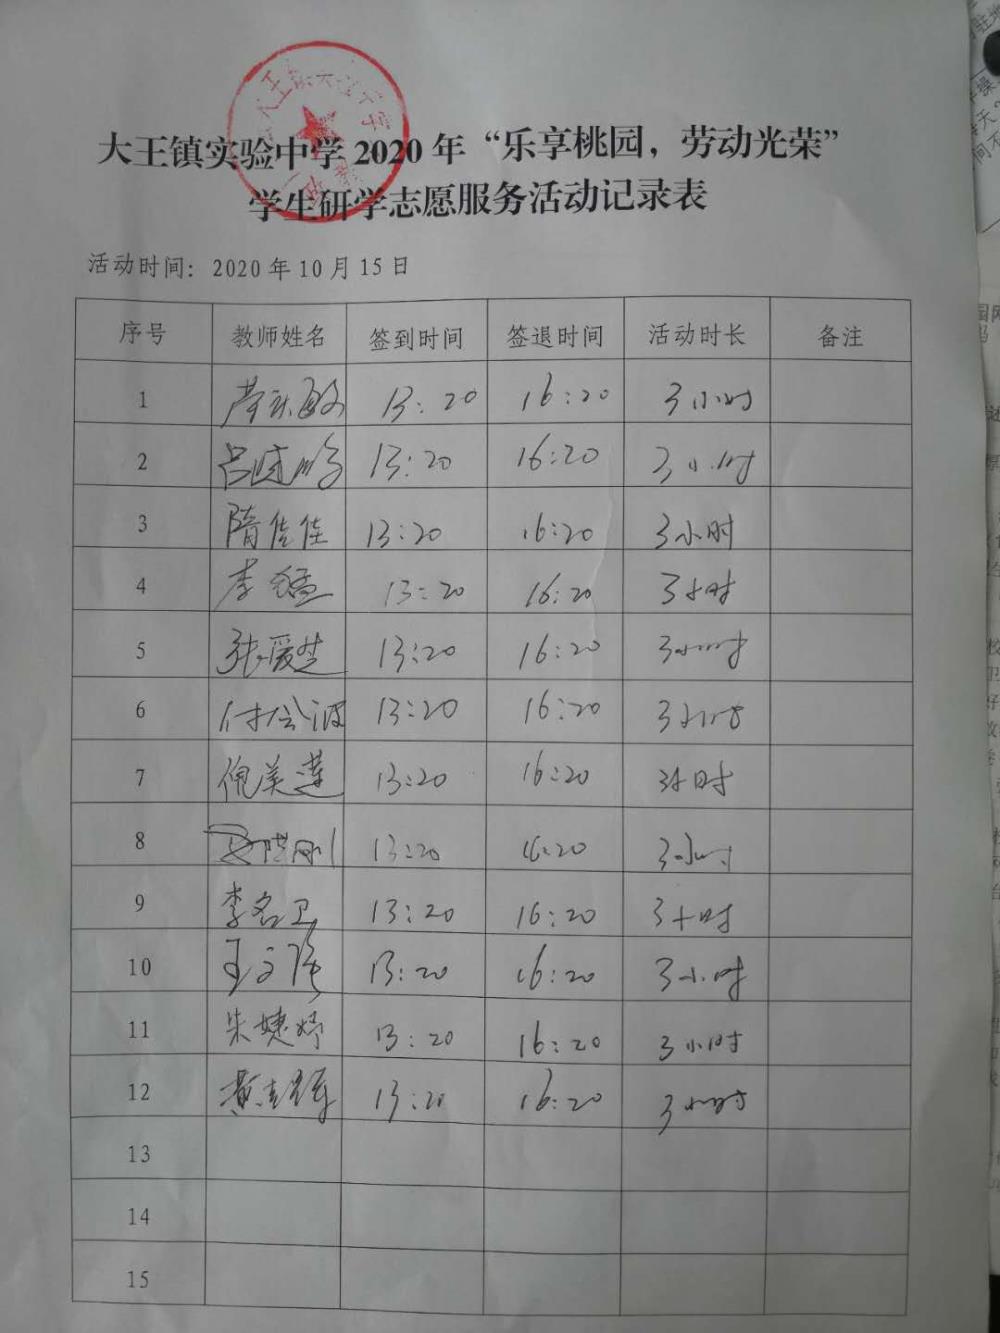 大王镇实验中学2020年“乐享桃园，劳动光荣”
学生研学志愿服务活动记录表
活动时间：2020年10月15日
序号 教师姓名 签到时间 签退时间 活动时长 备注
1 13:20 16:20 3小时
2 吕 13:20 16:20 3小时
3 隋佳佳 13:20 16:20 3小时
4 李猛 13:20 16:20 3小时
5 张爱芝 13:20 16:20 3小时
6 付会波 13:20 16:20 3小时
7 倪美莲 13:20 16:20 3小时
8 13:20 16:20 3小时
9 李名卫 13:20 16:20 3小时
10 王文 13:20 16:20 3小时
11 朱婕妤 13:20 16:20 3小时
12 黄 13:20 16:20 3小时
13
14
15